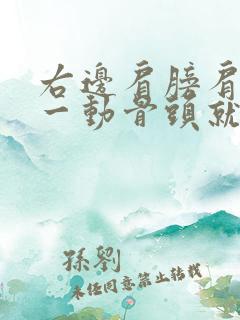 右邊肩膀肩
一動骨頭就
孫劉
未经同意禁止转载